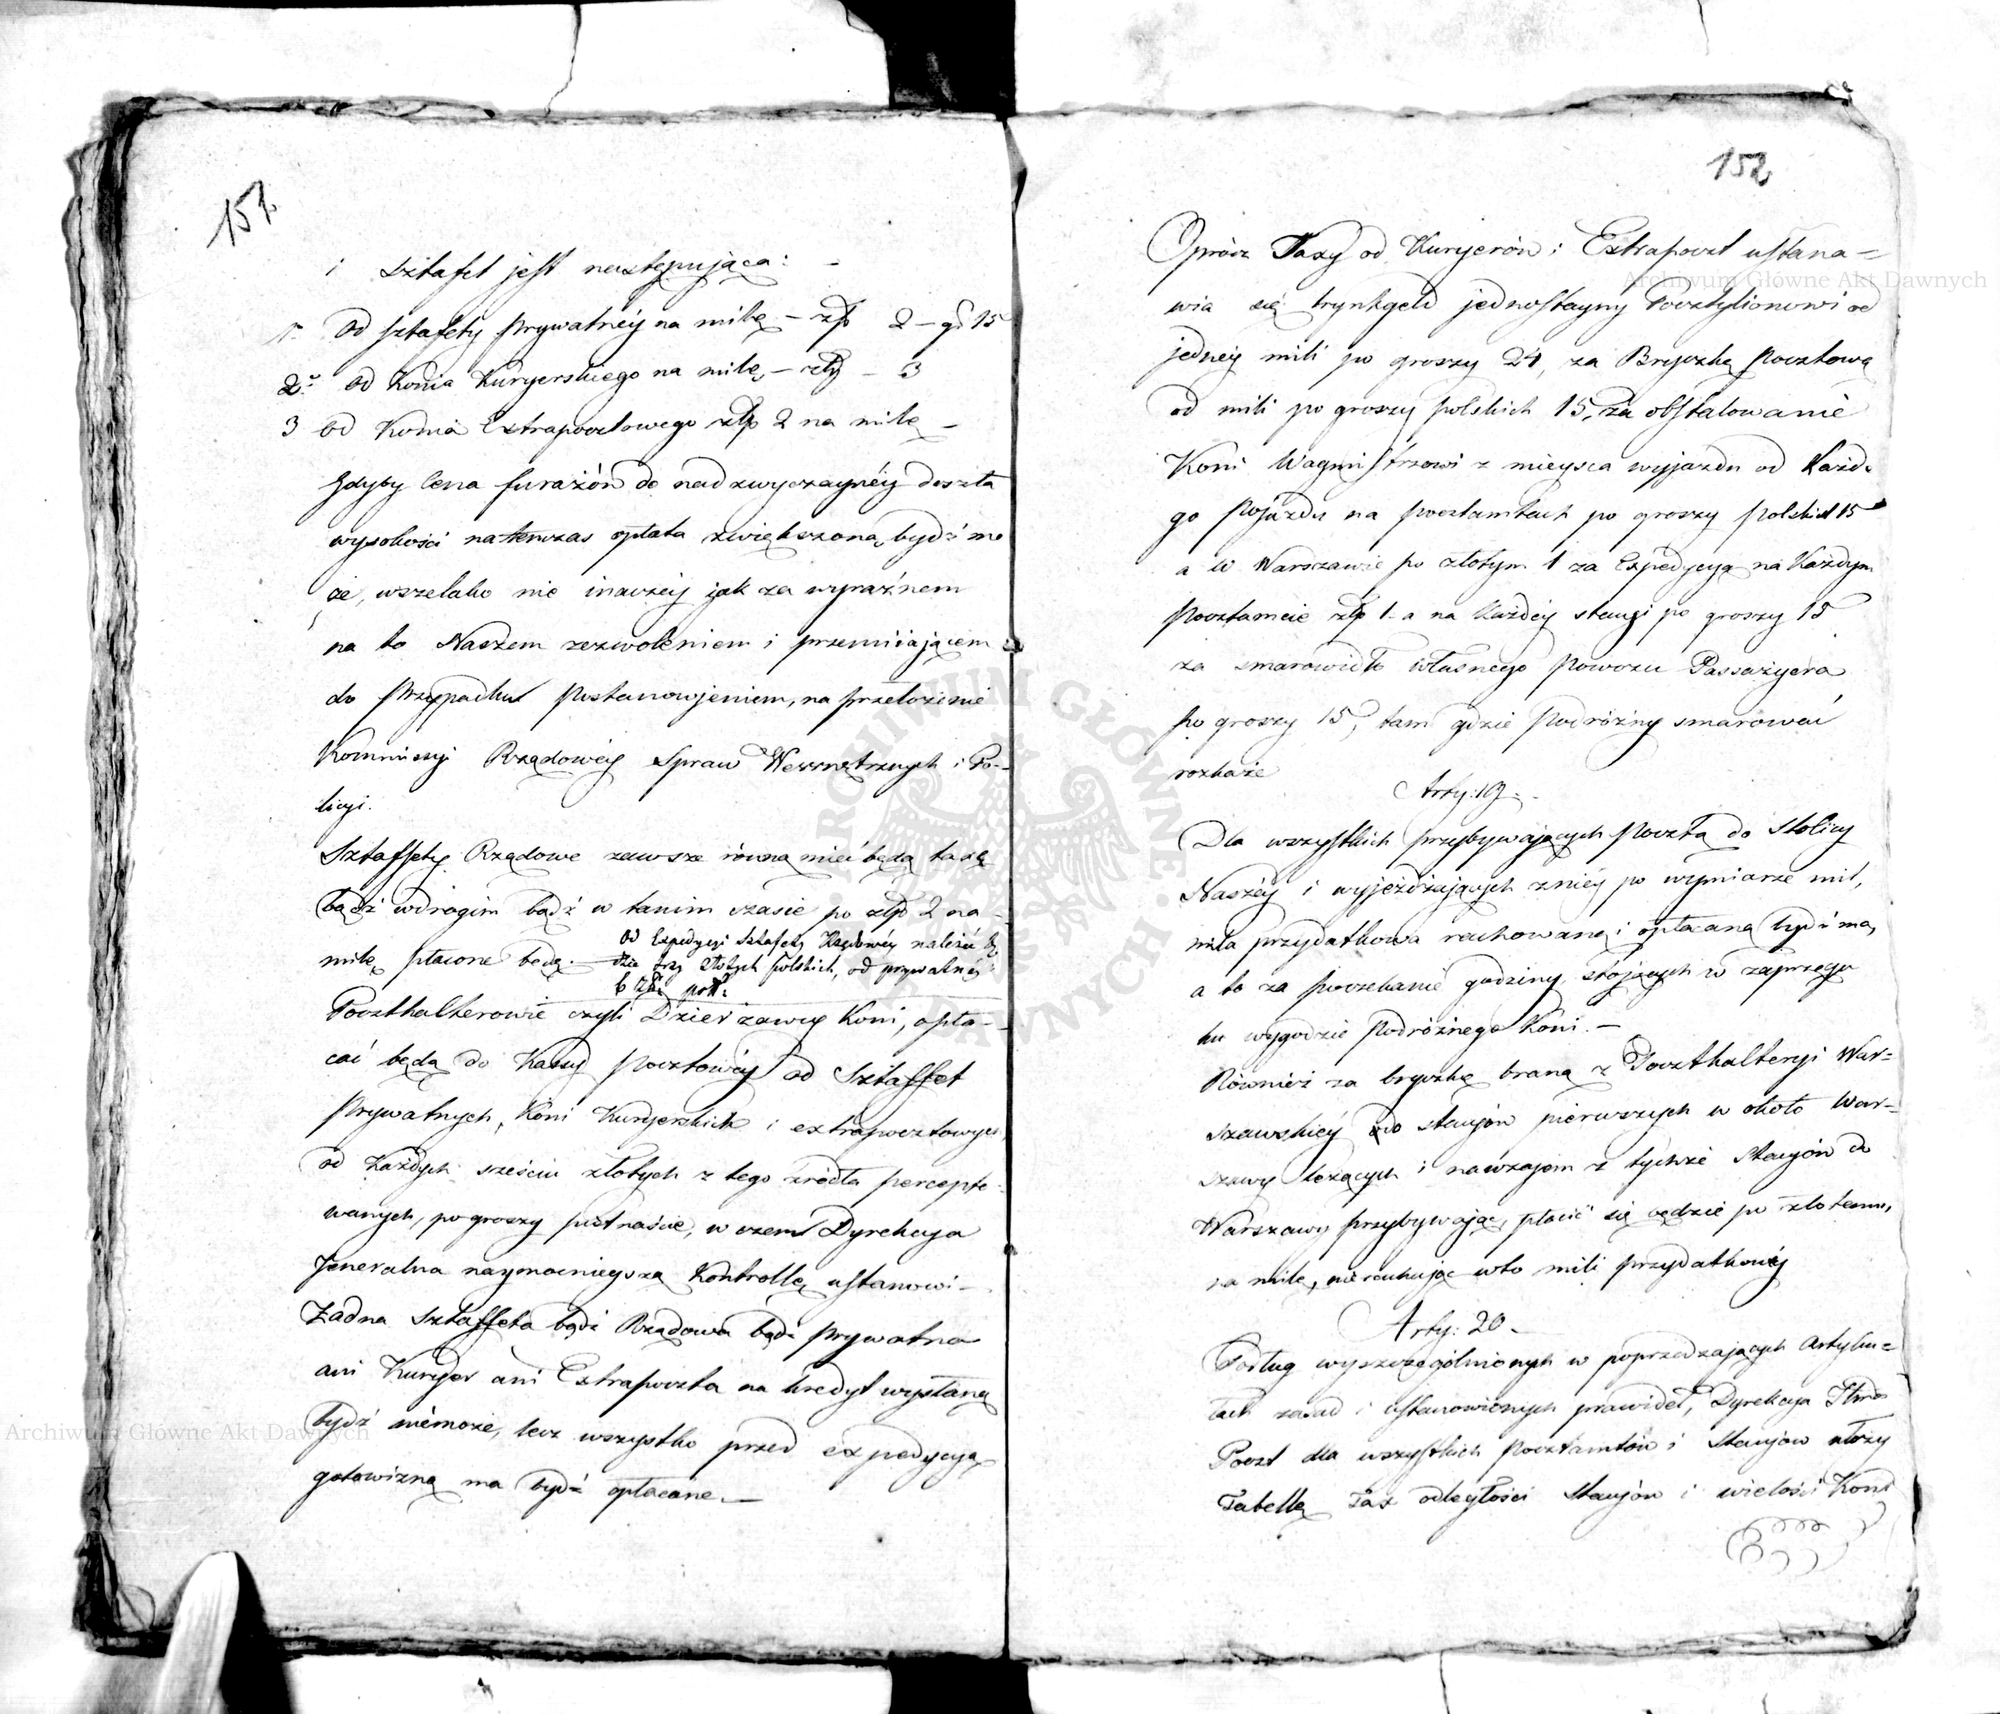 151.
i sztafet jest następująca: –
1o Od sztafety prywatnéy na milę – złp 2 – gr 15
2o od Konia Kuryerskiego na milę, – złp – 3
3 od Konia Extrapocztowego złp 2 na milę –
Gdyby Cena furażów do nadzwyczaynéy doszła
wysokości natenczas opłata zwiększoną bydź mo
że, wszelako nie inaczéy jak za wyraźnem
na to Naszem zezwoleniem i przemiiającem
do przypadku postanowieniem, na przełożenie
Kommissyi Rządowéy Spraw Wewnętrznych i Po-
licyi.
Sztaffety Rządowe zawsze równą mieć będą taxę
bądź w drogim bądź w tanim czasie po złp 2 na
milę płacone będą. –
od Expedycyi Sztafety Rządowéy należeć bę
dzie trzy złotych polskich, od prywatnéy
6 złł: poll:
Poczthalterowie czyli Dzierżawcy Koni, opła-
cać będą do Kassy pocztowéy od Sztaffet
Prywatnych, Koni Kuryerskich i extrapocztowych
od Każdych sześciu złotych z tego źródła percepto-
wanych, po groszy piętnaście, w czem Dyrekcya
Jeneralna naymocnieyszą Kontrollę ustanowi –
Żadna Sztaffeta bądź Rządowa bądź prywatna
ani Kuryer ani Extrapoczta na kredyt wysłaną
bydź niemoże, lecz wszystko przed expedycyą
gotowizną ma bydź opłacane. –
152
Oprócz Taxy od Kuryerów i Extrapoczt ustana=
wia się trynkgeld jednostayny Pocztylionowi od
jednéy mili po groszy 24, za Bryczkę pocztową
od mili po groszy polskich 15, za obstalowanie
Koni Wagmistrzowi z mieysca wyjazdu od Każde
go Pojazdu na pocztamtach po groszy polskich 15
a w Warszawie po złotym 1 za Expedycyą na Każdym
pocztamcie złp 1 – a na Każdéy stacyi po groszy 15
za smarowidło własnego powozu Passażyera
po groszy 15, tam gdzie Podróżny smarować
rozkaże
Arty: 19. –
Dla wszystkich przybywających Pocztą do Stolicy
Naszéy i wyjeżdżających z niéy po wymiarze mil,
mila przydatkowa rachowaną i opłacaną bydź ma,
a to za poczekanie godziny stojących w zaprzęgu
ku wygodzie Podróżnego Koni. –
Również za bryczkę braną z Poczthalteryi War=
szawskiéy do stacyów pierwszych w około War-
szawy leżących i nawzajem z tychże Stacyów do
Warszawy przybywając, płacić się będzie po złotemu,
za milę, nierachując w to mili przydatkowéy
Arty: 20 –
Podług wyszczególnionych w poprzedzających Artyku=
łach zasad i ustanowionych prawideł, Dyrekcya Jlna
Poczt dla wszystkich Pocztamtów i Stacyów ułoży
Tabellę Tax odległości Stacyów i wielości Koni